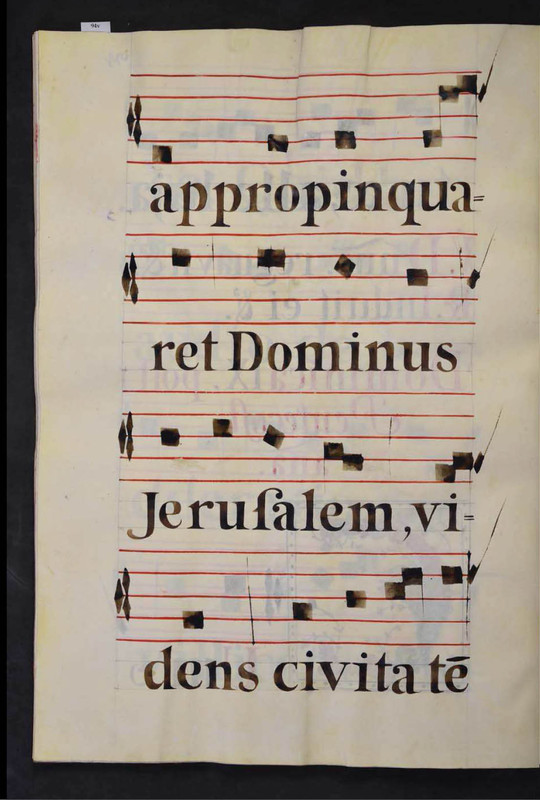 appropinqua=
ret Dominus
Jeruſalem, vi=
dens civita tē